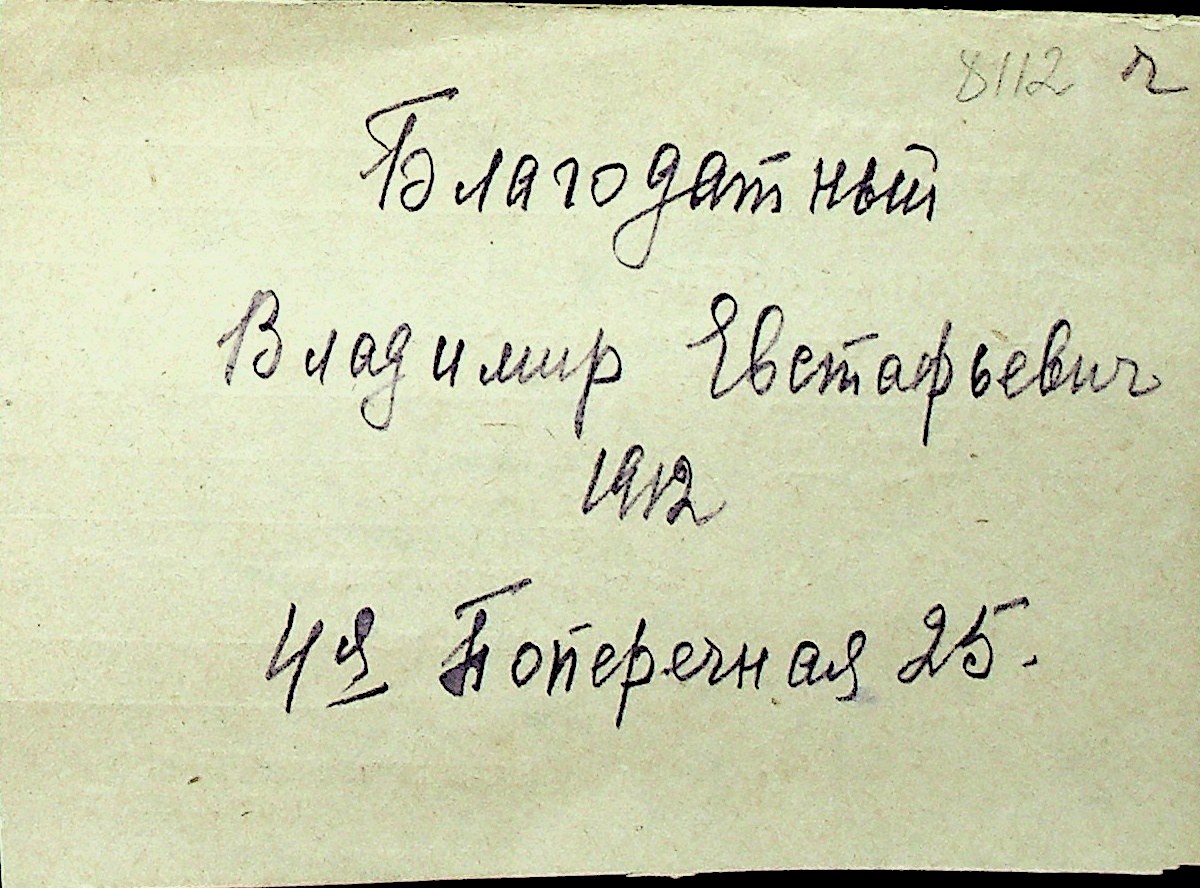 8112 ч
Благодатный
Владимир Евстафьевич
1912
4я Поперечная 25.